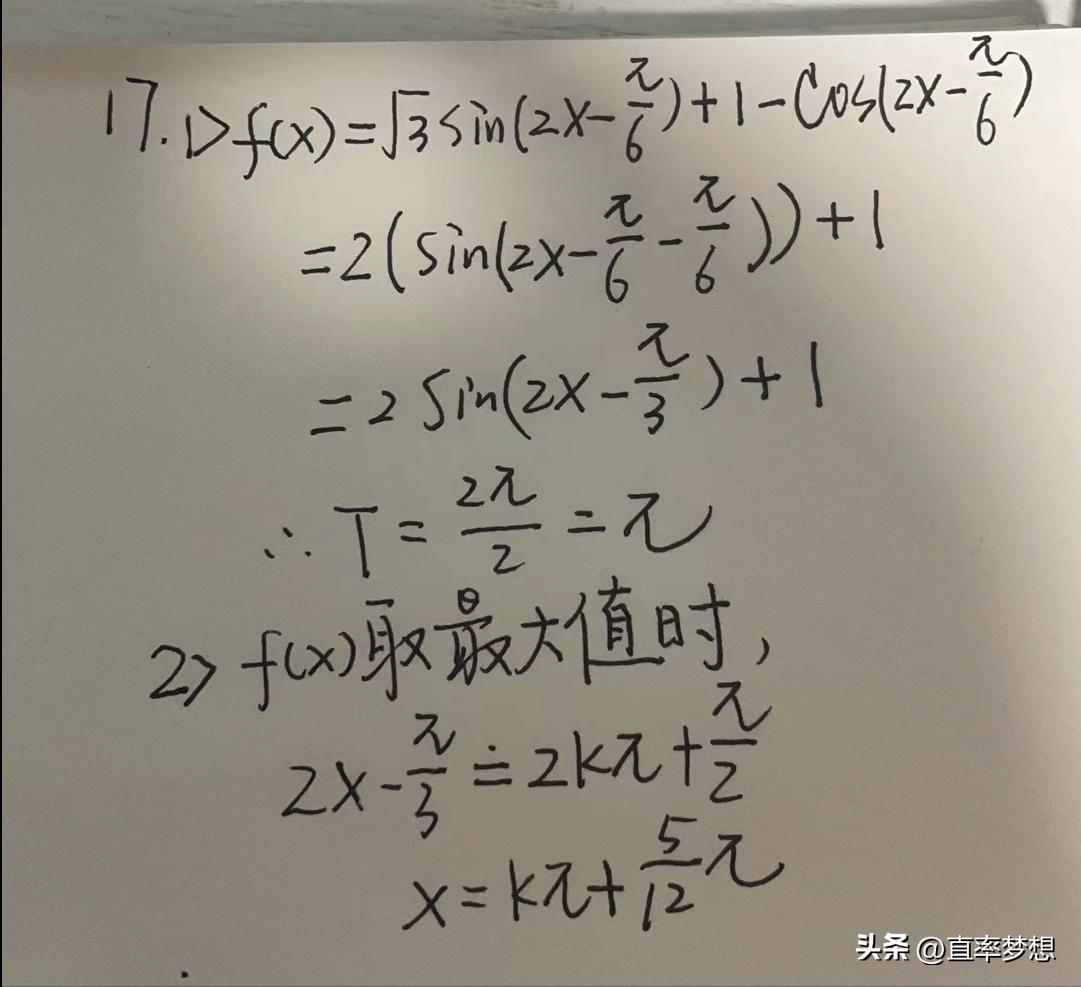 17. 1> f(x)=√3sin(2x-π/6)+1-Cos(2x-π/6)
=2(sin(2x-π/6-π/6))+1
=2sin(2x-π/3)+1
∴T=2π/2=π
2> f(x)取最大值时,
2x-π/3≐2kπ+π/2
x=kπ+5/12π
头条 @直率梦想